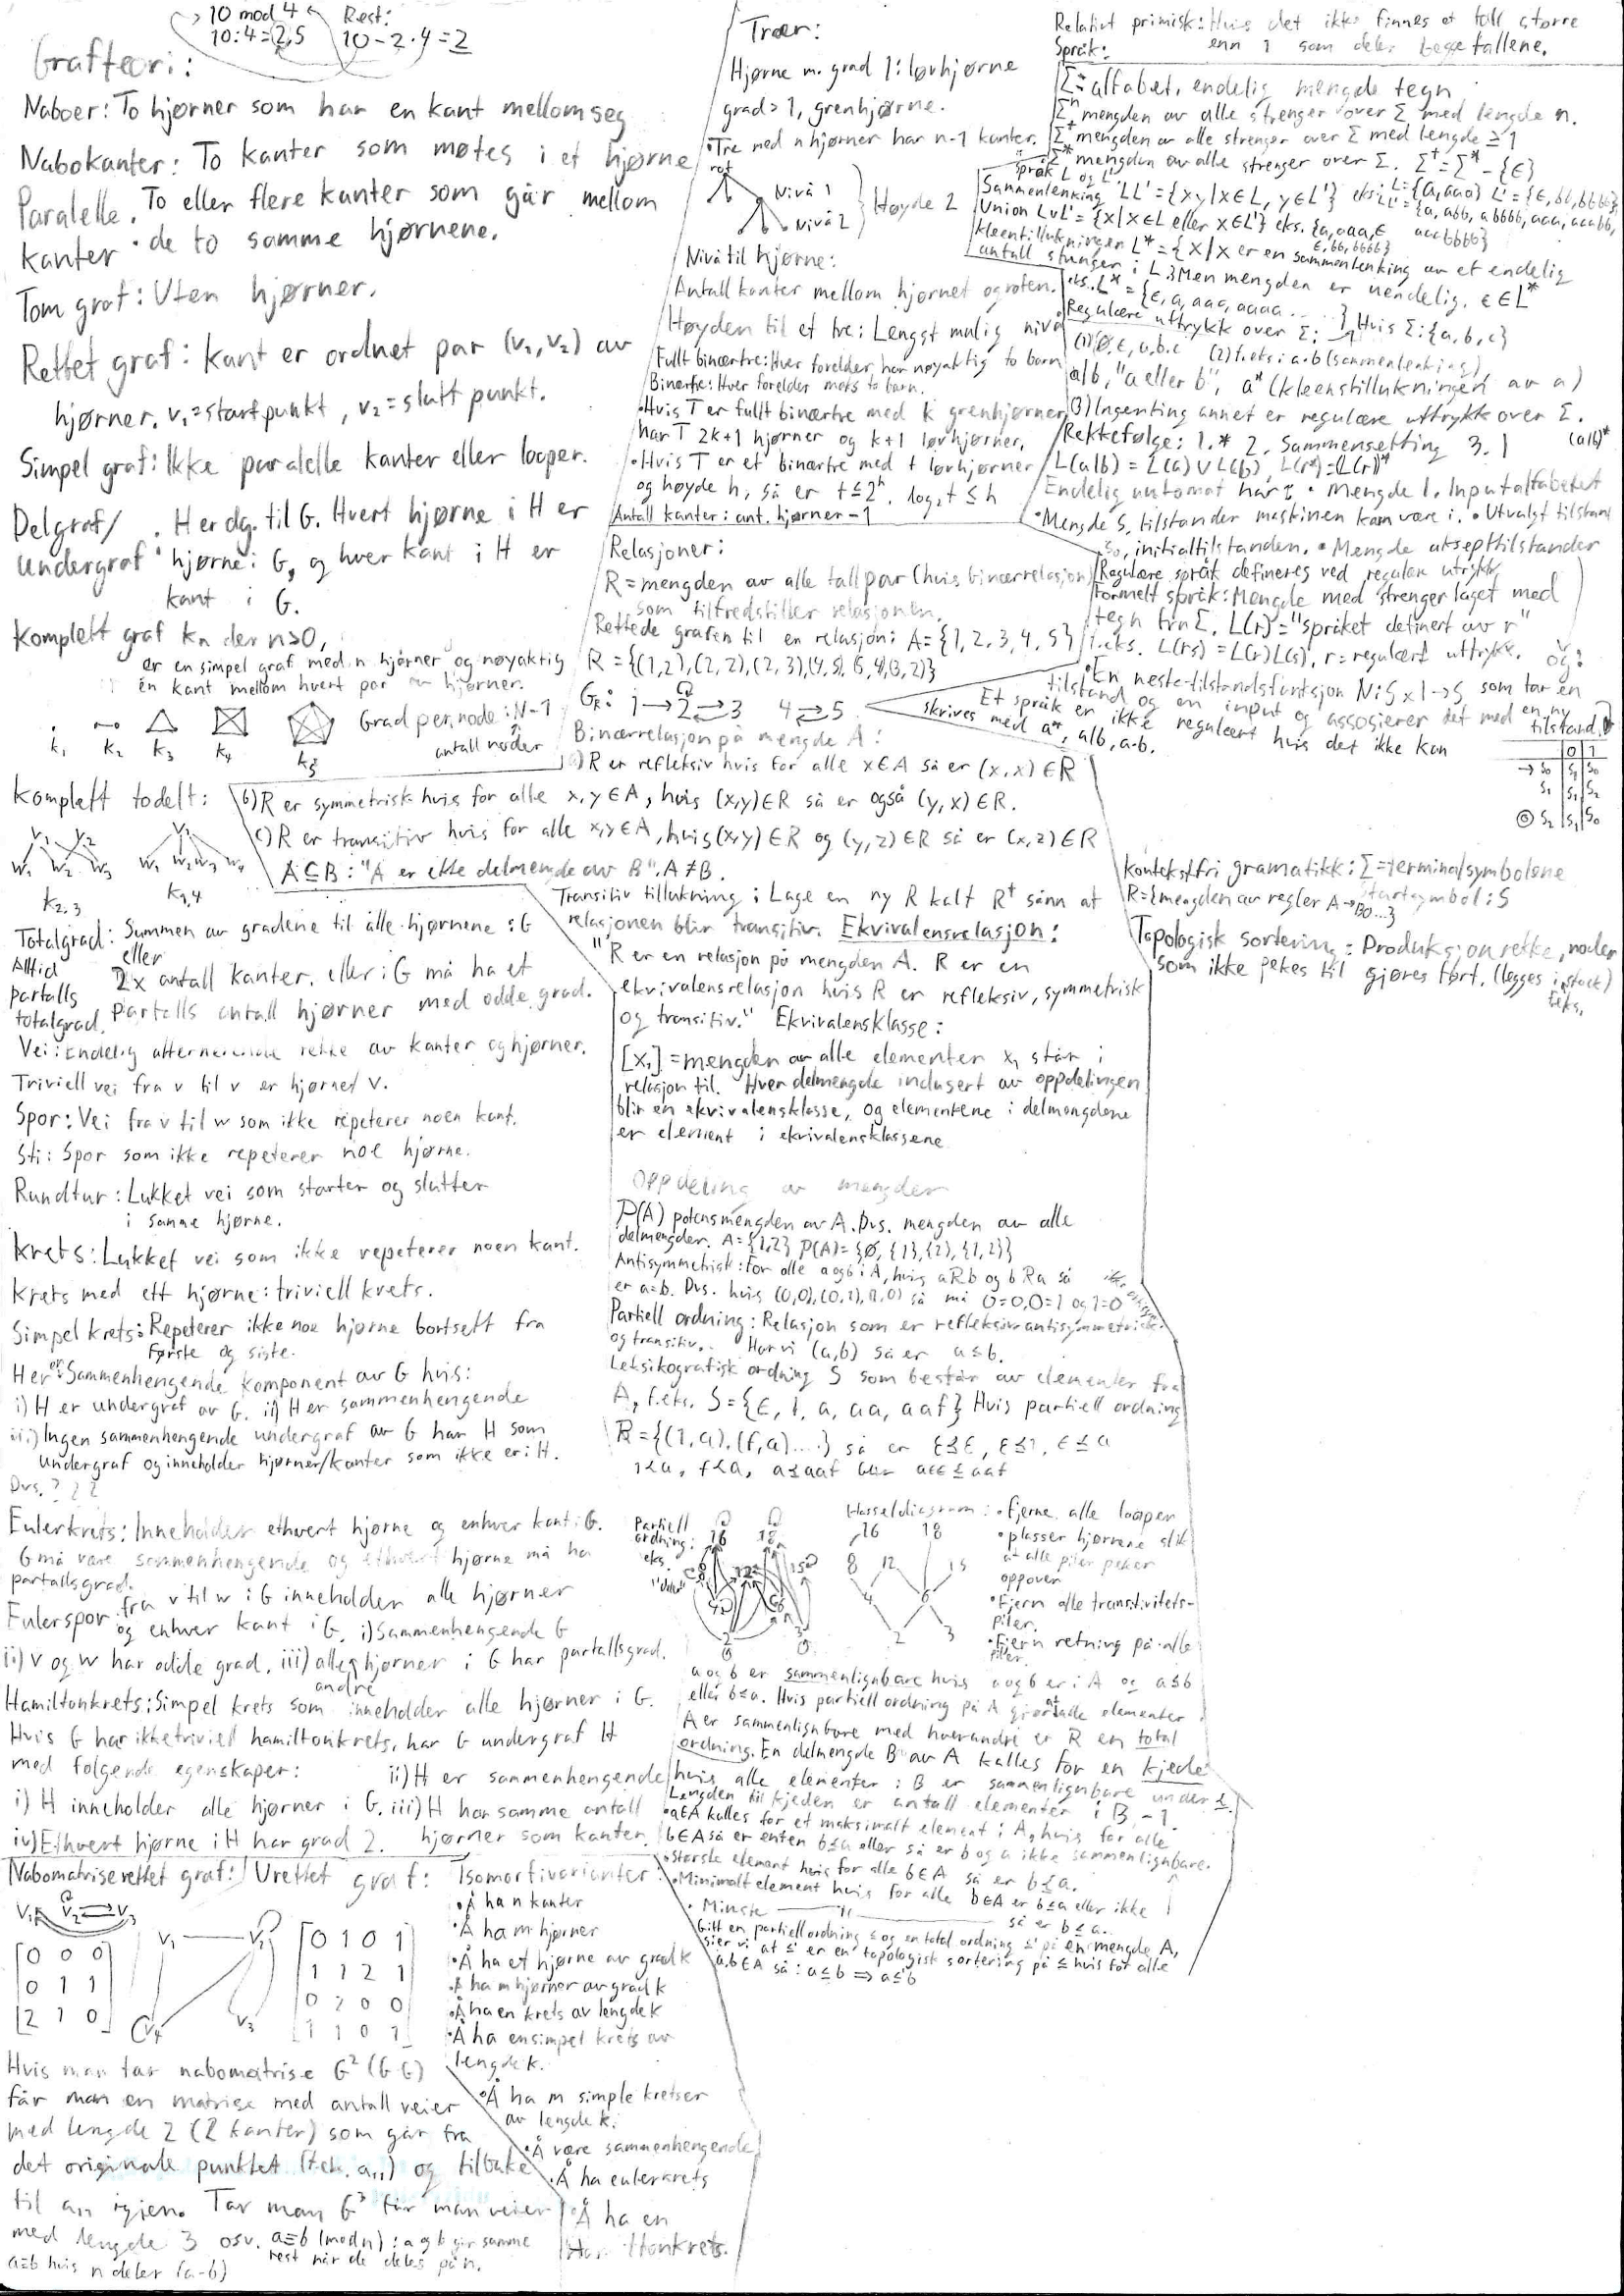 10 mod 4
10:4=2,5
Rest:
10-2·4=2
Grafteori:
Naboer: To hjørner som har en kant mellom seg
Nabokanter: To kanter som møtes i et hjørne
Paralelle kanter: To eller flere kanter som går mellom
de to samme hjørnene.
Tom graf: Uten hjørner.
Rettet graf: kant er ordnet par (v₁,v₂) av
hjørner. v₁=startpunkt, v₂=sluttpunkt.
Simpel graf: Ikke paralelle kanter eller looper.
Delgraf/undergraf: H er dg. til G. Hvert hjørne i H er
hjørne i G, og hver kant i H er
kant i G.
Komplett graf Kn der n>0,
er en simpel graf med n hjørner og nøyaktig
én kant mellom hvert par av hjørner.
K₁ K₂ K₃ K₄ K₅
Grad per node: N-1
antall noder
Komplett todelt:
V₁ V₂
W₁ W₂ W₃
K₂,₃
V₁
W₁ W₂ W₃ W₄
K₁,₄
Totalgrad: Summen av gradene til alle hjørnene i G
eller
2x antall kanter. eller: G må ha et
partalls antall hjørner med odde grad.
Alltid
partalls
totalgrad.
Vei: Endelig alternerende rekke av kanter og hjørner.
Triviell vei fra v til v er hjørnet v.
Spor: Vei fra v til w som ikke repeterer noen kant.
Sti: Spor som ikke repeterer noe hjørne.
Rundtur: Lukket vei som starter og slutter
i samme hjørne.
Krets: Lukket vei som ikke repeterer noen kant.
Krets med ett hjørne: triviell krets.
Simpel krets: Repeterer ikke noe hjørne bortsett fra
første og siste.
H er en Sammenhengende komponent av G hvis:
i) H er undergraf av G. ii) H er sammenhengende
iii) Ingen sammenhengende undergraf av G har H som
undergraf og inneholder hjørner/kanter som ikke er i H.
Dvs. ???
Eulerkrets: Inneholder ethvert hjørne og enhver kant i G.
G må være sammenhengende og ethvert hjørne må ha
partallsgrad.
Eulerspor fra v til w i G inneholder alle hjørner
og enhver kant i G. i) Sammenhengende G
ii) v og w har odde grad. iii) alle andre hjørner i G har partallsgrad.
Hamiltonkrets: Simpel krets som inneholder alle hjørner i G.
Hvis G har ikketriviell hamiltonkrets, har G undergraf H
med følgende egenskaper: ii) H er sammenhengende
i) H inneholder alle hjørner i G. iii) H har samme antall
iv) Ethvert hjørne i H har grad 2. hjørner som kanter.
Nabomatrise rettet graf:
V₁ V₂ V₃
0 0 0
0 1 1
2 1 0
Urettet graf:
V₁ V₂
V₄ V₃
0 1 0 1
1 1 2 1
0 2 0 0
1 1 0 1
Hvis man tar nabomatrise G² (G·G)
får man en matrise med antall veier
med lengde 2 (2 kanter) som går fra
det originale punktet (f.eks. a₁₁) og tilbake
til a₁₁ igjen. Tar man G³ får man veier
med lengde 3 osv. a≡b (mod n): a og b gir samme
rest når de deles på n.
a≡b hvis n deler (a-b)
Isomorfivarianter:
• Å ha n kanter
• Å ha m hjørner
• Å ha et hjørne av grad k
• Å ha m hjørner av grad k
• Å ha en krets av lengde k
• Å ha en simpel krets av
lengde k.
• Å ha m simple kretser
av lengde k.
• Å være sammenhengende
• Å ha eulerkrets
• Å ha en
Hamiltonkrets.
Trær:
Hjørne m. grad 1: løvhjørne
grad>1, grenhjørne.
• Tre med n hjørner har n-1 kanter.
rot
Nivå 1
Nivå 2
Høyde 2
Nivå til hjørne:
Antall kanter mellom hjørnet og roten.
Høyden til et tre: Lengst mulig nivå
Fullt binærtre: Hver forelder har nøyaktig to barn
Binærtre: Hver forelder maks to barn.
• Hvis T er fullt binærtre med k grenhjørner,
har T 2k+1 hjørner og k+1 løvhjørner.
• Hvis T er et binærtre med t løvhjørner
og høyde h, så er t≤2ʰ. log₂t ≤ h
Antall kanter: ant. hjørner-1
Relasjoner:
R=mengden av alle tallpar (hvis binærrelasjon)
som tilfredstiller relasjonen.
Rettede grafen til en relasjon: A={1,2,3,4,5}
R={(1,2),(2,2),(2,3),(4,5),(5,4),(3,2)}
G_R: 1→2⇄3 4⇄5
Binærrelasjon på mengde A:
a) R er refleksiv hvis for alle x∈A så er (x,x)∈R
b) R er symmetrisk hvis for alle x,y∈A, hvis (x,y)∈R så er også (y,x)∈R.
c) R er transitiv hvis for alle x,y∈A, hvis (x,y)∈R og (y,z)∈R så er (x,z)∈R
A⊆B: "A er ekte delmengde av B". A≠B.
Transitiv tillukning: Lage en ny R kalt R⁺ sånn at
relasjonen blir transitiv. Ekvivalensrelasjon:
"R er en relasjon på mengden A. R er en
ekvivalensrelasjon hvis R er refleksiv, symmetrisk
og transitiv." Ekvivalensklasse:
[x₁]=mengden av alle elementer x₁ står i
relasjon til. Hver delmengde indusert av oppdelingen
blir en ekvivalensklasse, og elementene i delmengdene
er element i ekvivalensklassene
Oppdeling av mengder
P(A) potensmengden av A. Dvs. mengden av alle
delmengder. A={1,2} P(A)={∅,{1},{2},{1,2}}
Antisymmetrisk: For alle a og b i A, hvis aRb og bRa så
er a=b. Dvs. hvis (0,0),(0,1),(1,0) så må 0=0, 0=1 og 1=0
Partiell ordning: Relasjon som er refleksiv antisymmetrisk
og transitiv. Har vi (a,b) så er a≤b.
Leksikografisk ordning S som består av elementer fra
A, f.eks. S={ϵ, 1, a, aa, aaf} Hvis partiell ordning
R={(1,a),(f,a)....} så er ϵ≤ϵ, ϵ≤1, ϵ≤a
1≤a, f≤a, a≤aaf
Partiell
ordning:
eks.
"deler"
16 18
8 12 15
4 6
2 3
Hassediagram: • Fjerne alle looper
• plasser hjørnene slik
at alle piler peker
oppover
• Fjern alle transitivitets-
piler.
• Fjern retning på alle
piler.
16 18
8 12 15
4 6
2 3
a og b er sammenlignbare hvis a og b er i A og a≤b
eller b≤a. Hvis partiell ordning på A gjør at alle elementer i
A er sammenlignbare med hverandre er R en total
ordning. En delmengde B av A kalles for en kjede
hvis alle elementer i B er sammenlignbare under ≤.
Lengden til kjeden er antall elementer i B -1.
• a∈A kalles for et maksimalt element i A, hvis for alle
b∈A så er enten b≤a eller så er b og a ikke sammenlignbare.
• Største element hvis for alle b∈A så er b≤a.
• Minimalt element hvis for alle b∈A er b≤a eller ikke
• Minste —"— så er b≤a.
Gitt en partiell ordning ≤ og en total ordning ≤' på en mengde A,
sier vi at ≤' er en topologisk sortering på ≤ hvis for alle
a,b∈A så: a≤b ⇒ a≤'b
Relativt primisk: Hvis det ikke finnes et tall større
enn 1 som deler begge tallene.
Språk:
Σ=alfabet, endelig mengde tegn
Σⁿ mengden av alle strenger over Σ med lengde n.
Σ⁺ mengden av alle strenger over Σ med lengde ≥1
Σ* mengden av alle strenger over Σ. Σ⁺=Σ*-{ϵ}
språk L og L'
Sammenlenking LL'={xy|x∈L, y∈L'} eks: L={a,aaa} L'={ϵ,bb,bbbb}
LL'={a, abb, abbbb, aaa, aaabb,
aaabbbb}
Union L∪L'={x|x∈L eller x∈L'} eks. {a,aaa,ϵ
ϵ,bb,bbbb}
Kleentillukningen L*={x|x er en sammenlenking av et endelig
antall strenger i L} Men mengden er uendelig. ϵ∈L*
eks. L*={ϵ,a,aaa,aaaa.....}
Regulære uttrykk over Σ: Hvis Σ:{a,b,c}
(1) ∅,ϵ,a,b,c (2) f.eks: a·b (sammenlenking),
a|b, "a eller b", a* (kleenstillukningen av a)
(3) Ingenting annet er regulære uttrykk over Σ.
Rekkefølge: 1.* 2. Sammensetting 3. | (a|b)*
L(a|b)=L(a)∪L(b), L(r*)=(L(r))*
Endelig automat har: • Mengde I. Inputalfabetet
• Mengde S, tilstander maskinen kan være i. • Utvalgt tilstand
s₀, initialtilstanden. • Mengde aksepttilstander
Regulære språk defineres ved regulær uttrykk
Formelt språk: Mengde med strenger laget med
tegn fra Σ. L(r)="språket definert av r"
f.eks. L(rs)=L(r)L(s), r=regulært uttrykk. og:
• En neste-tilstandsfunksjon N:S×I→S som tar en
tilstand og en input og assosierer det med en ny
tilstand.
Et språk er ikke regulært hvis det ikke kan
skrives med a*, a|b, a·b.
0 1
→ S₀ S₁ S₀
S₁ S₁ S₂
◎ S₂ S₁ S₀
Kontekstfri gramatikk: Σ=terminalsymbolene
R={mengden av regler A→B0...} Startsymbol: S
Topologisk sortering: Produksjonsrekke, noder
som ikke pekes til gjøres først. (legges i stack)
f.eks.